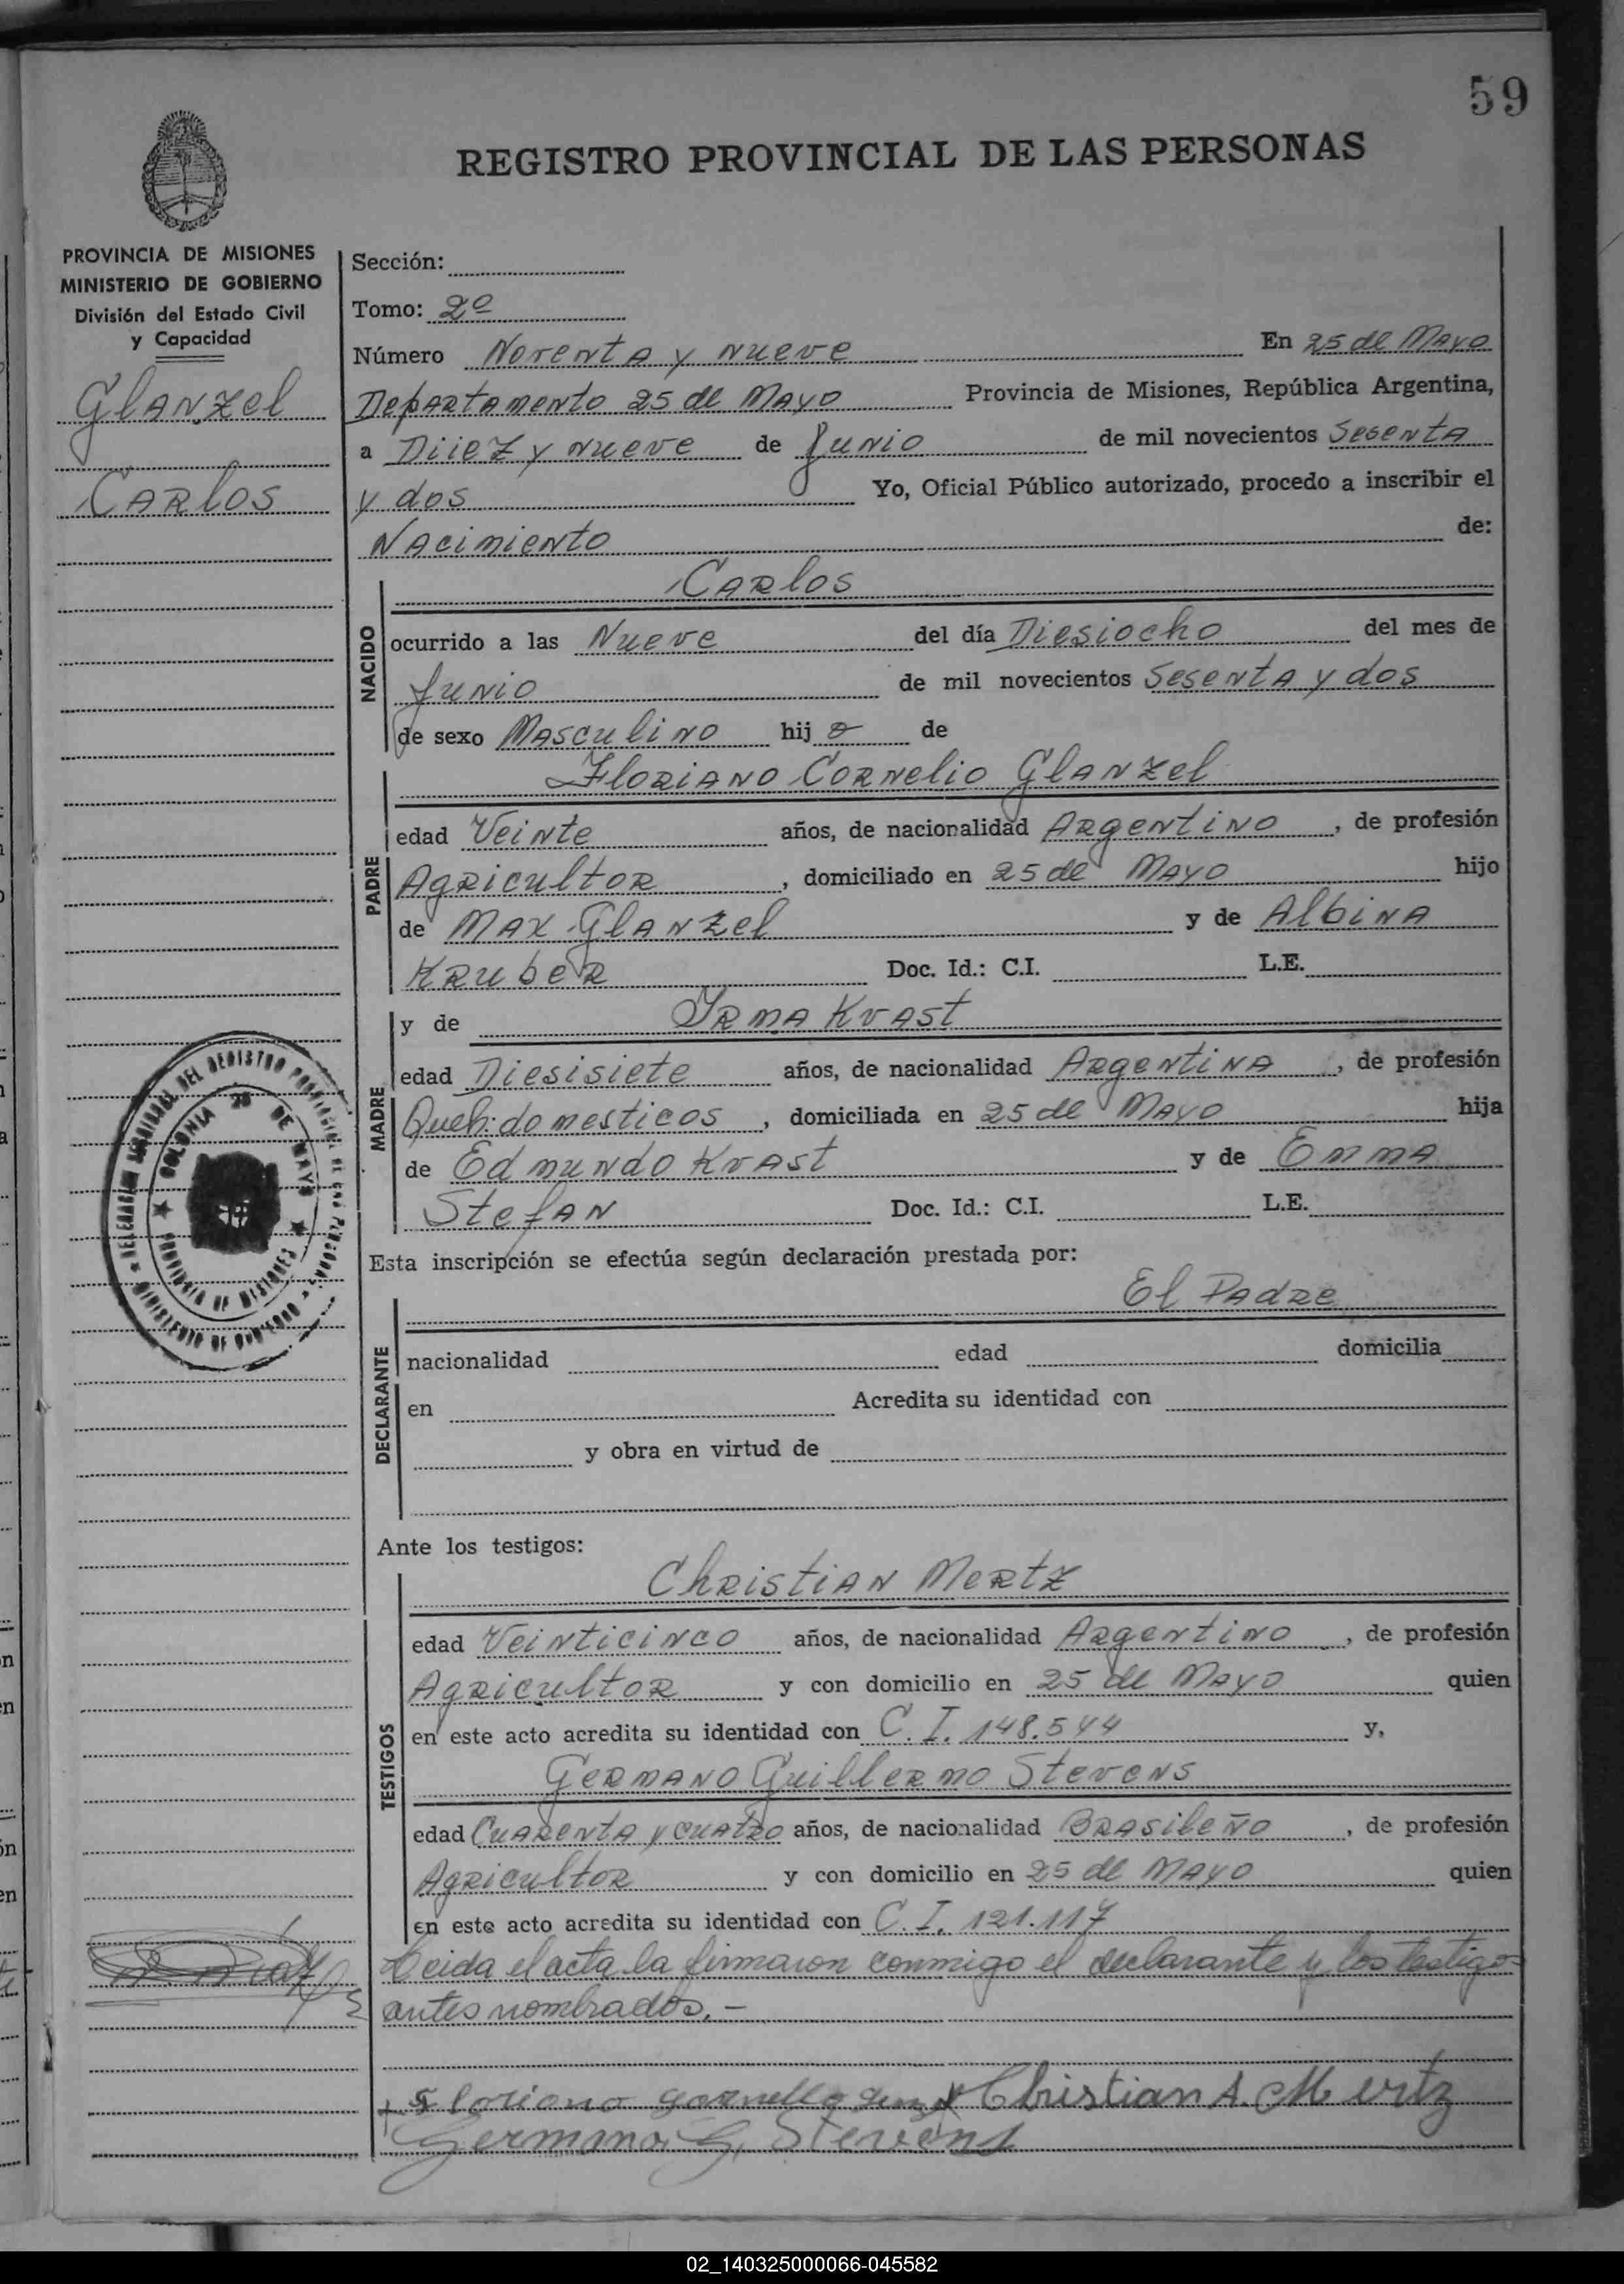 59
REGISTRO PROVINCIAL DE LAS PERSONAS
PROVINCIA DE MISIONES
MINISTERIO DE GOBIERNO
División del Estado Civil
y Capacidad
Glanzel
Carlos
Sección:
Tomo: 2º
Número Noventa y nueve En 25 de Mayo
Departamento 25 de Mayo Provincia de Misiones, República Argentina,
a Diiez y nueve de Junio de mil novecientos Sesenta
y dos Yo, Oficial Público autorizado, procedo a inscribir el
Nacimiento de:
NACIDO
Carlos
ocurrido a las Nueve del día Diesiocho del mes de
Junio de mil novecientos Sesenta y dos
de sexo Masculino hijo de
PADRE
Floriano Cornelio Glanzel
edad Veinte años, de nacionalidad Argentino, de profesión
Agricultor, domiciliado en 25 de Mayo hijo
de Max Glanzel y de Albina
Kruber Doc. Id.: C.I. L.E.
MADRE
y de Irma Kvast
edad Diesisiete años, de nacionalidad Argentina, de profesión
Queh. domesticos, domiciliada en 25 de Mayo hija
de Edmundo Kvast y de Emma
Stefan Doc. Id.: C.I. L.E.
DELEGACIÓN DEL REGISTRO PROVINCIAL DE LAS PERSONAS
MINISTERIO DE GOBIERNO
COLONIA 25 DE MAYO
PROVINCIA DE MISIONES
Esta inscripción se efectúa según declaración prestada por:
DECLARANTE
El Padre
nacionalidad edad domicilia
en Acredita su identidad con
y obra en virtud de
Ante los testigos:
TESTIGOS
Christian Mertz
edad Veinticinco años, de nacionalidad Argentino, de profesión
Agricultor y con domicilio en 25 de Mayo quien
en este acto acredita su identidad con C. I. 148.544 y,
Germano Guillermo Stevens
edad Cuarenta y cuatro años, de nacionalidad Brasileño, de profesión
Agricultor y con domicilio en 25 de Mayo quien
en este acto acredita su identidad con C. I. 121.117
Leida el acta la firmaron conmigo el declarante y los testigos
antes nombrados.-
Floriano Christian A. Mertz
Germano G. Stevens
02_140325000066-045582